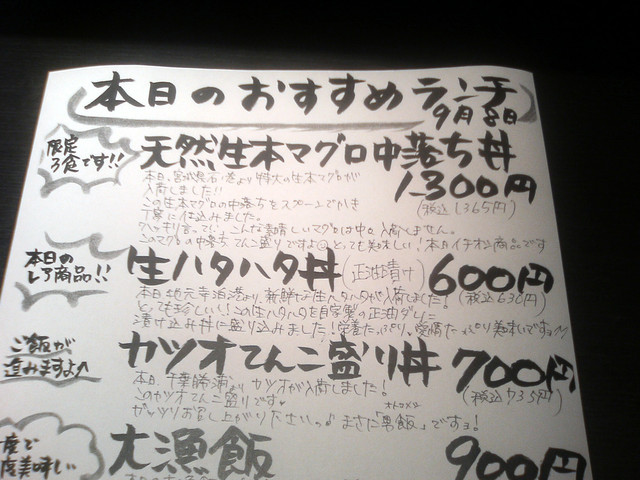 本日のおすすめランチ
9月8日
限定
3食です!!
天然生本マグロ中落ち丼
1,300円
(税込1,365円)
本日、宮城県石巻港より特大の生本マグロが
入荷しました!!
この生本マグロの中落ちをスプーンでかき
丁寧に仕込みました。
ハッキリ言って、こんな素晴しいマグロは中々入荷しません。
このマグロの中落ちてんこ盛りですよ とっても美味しい!本日イチオシ商品です
本日の
レア商品!!
生ハタハタ丼(正油漬け)600円
(税込630円)
本日、地元寺泊港より、新鮮な生ハタハタが入荷しました!
とっても珍しい!この生ハタハタを自家製の正油ダレに
漬け込み丼に盛り込みました!栄養たっぷり、愛情たっぷり美味いですョ
ご飯が
進みますよ
カツオてんこ盛り丼 700円
(税込735円)
本日、千葉勝浦より、カツオが入荷しました!
このカツオてんこ盛りです
ガッツリお召し上がりくださいっ♪まさに「男飯」ですョ!
オトコメシ
度で
度美味しい
大漁飯 900円